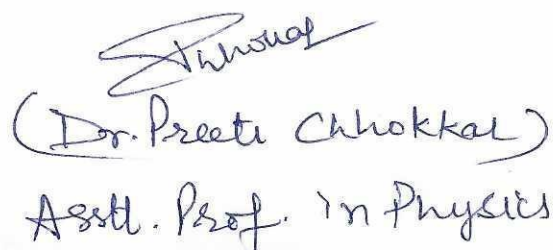 (Dr. Preeti Chhokkar)
Asstt. Prof. in Physics